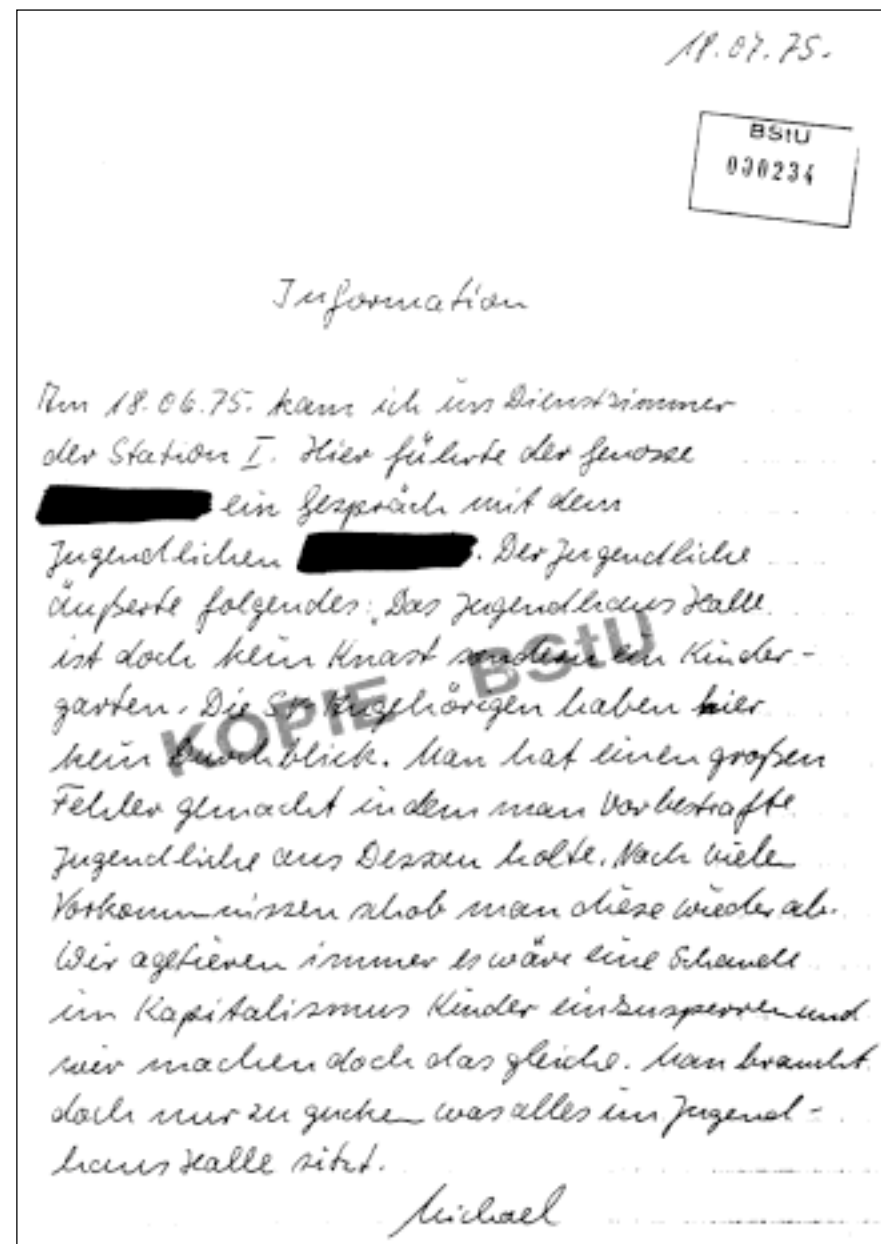 18.07.75.
BStU
000234
Information
Am 18.06.75. kam ich ins Dienstzimmer
der Station I. Hier führte der Genosse
ein Gespräch mit dem
Jugendlichen . Der Jugendliche
äußerte folgendes: „Das Jugendhaus Halle
ist doch kein Knast sondern ein Kinder-
garten. Die SV Angehörigen haben hier
kein Durchblick. Man hat einen großen
Fehler gemacht indem man Vorbestrafte
Jugendliche aus Dessau holte. Nach viele
Vorkommnissen schob man diese wieder ab.
Wir agetieren immer es wäre eine Schande
im Kapitalismus Kinder einzusperren und
wir machen doch das gleiche. Man braucht
doch nur zu gucken was alles im Jugend-
haus Halle sitzt.
Michael
KOPIE BStU